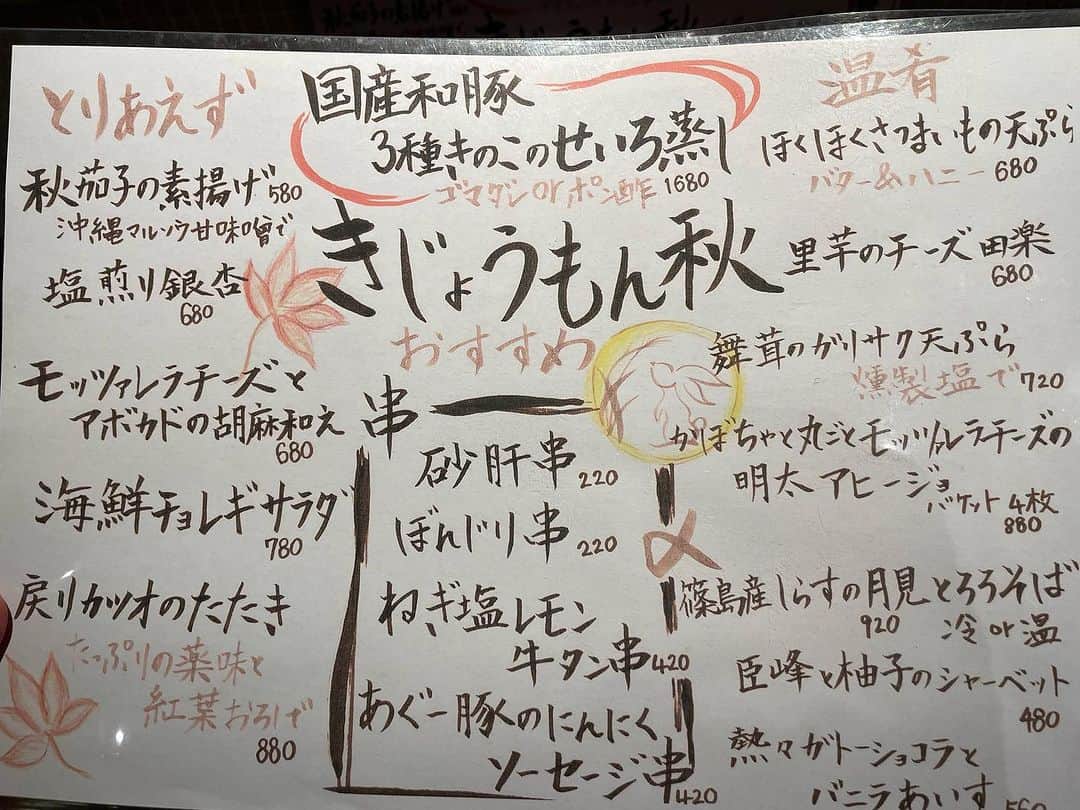 とりあえず
秋茄子の素揚げ 580
沖縄マルソウ甘味噌で
塩煎り銀杏
680
モッツァレラチーズと
アボカドの胡麻和え
680
海鮮チョレギサラダ
780
戻りカツオのたたき
たっぷりの薬味と
紅葉おろしで
880
国産和豚
3種きのこのせいろ蒸し
ゴマダレorポン酢 1680
きじょうもん秋
おすすめ
串
砂肝串 220
ぼんじり串 220
ねぎ塩レモン
牛タン串 420
あぐー豚のにんにく
ソーセージ串 420
温肴
ほくほくさつまいもの天ぷら
バター&ハニー 680
里芋のチーズ田楽
680
舞茸のガリサク天ぷら
燻製塩で 720
かぼちゃと丸ごとモッツァレラチーズの
明太アヒージョ
バケット4枚
880
〆
篠島産しらすの月見とろろそば
920 冷or温
臣峰と柚子のシャーベット
480
熱々ガトーショコラと
バニラあいす